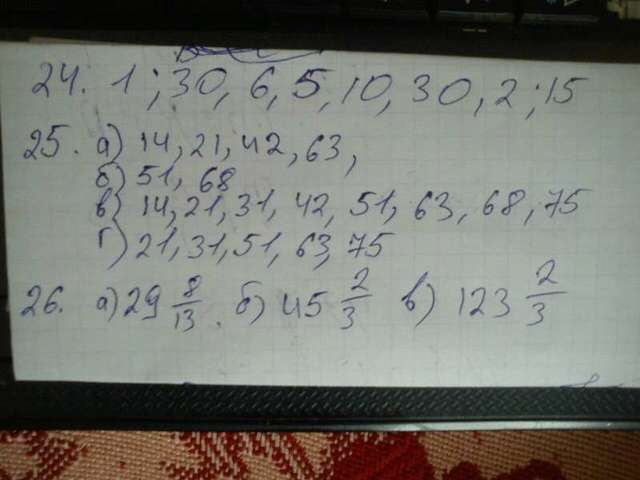 24. 1; 30, 6, 5, 10, 30, 2; 15
25. а) 14, 21, 42, 63,
б) 51, 68
в) 14, 21, 31, 42, 51, 63, 68, 75
г) 21, 31, 51, 63, 75
26. а) 29 8/13. б) 45 2/3 в) 123 2/3